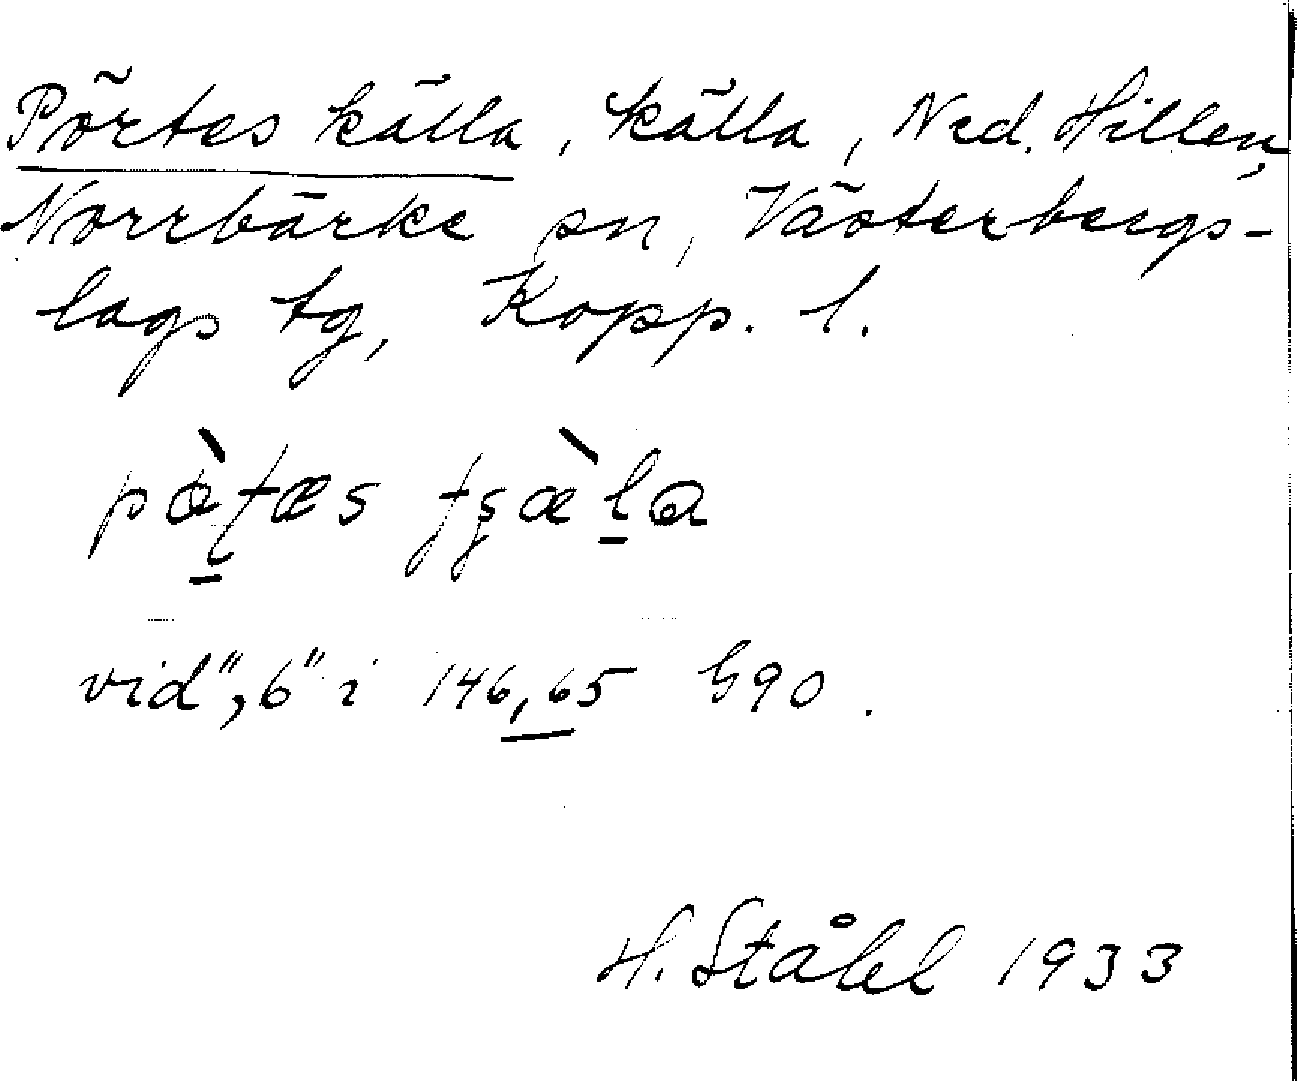 Pörtes källa, källa, Ned. Hillen,
Norrbärke sn, Västerbergs-
lags tg, Kopp. l.
vid ",6" i 146,65 G90.
H. Ståhl 1933